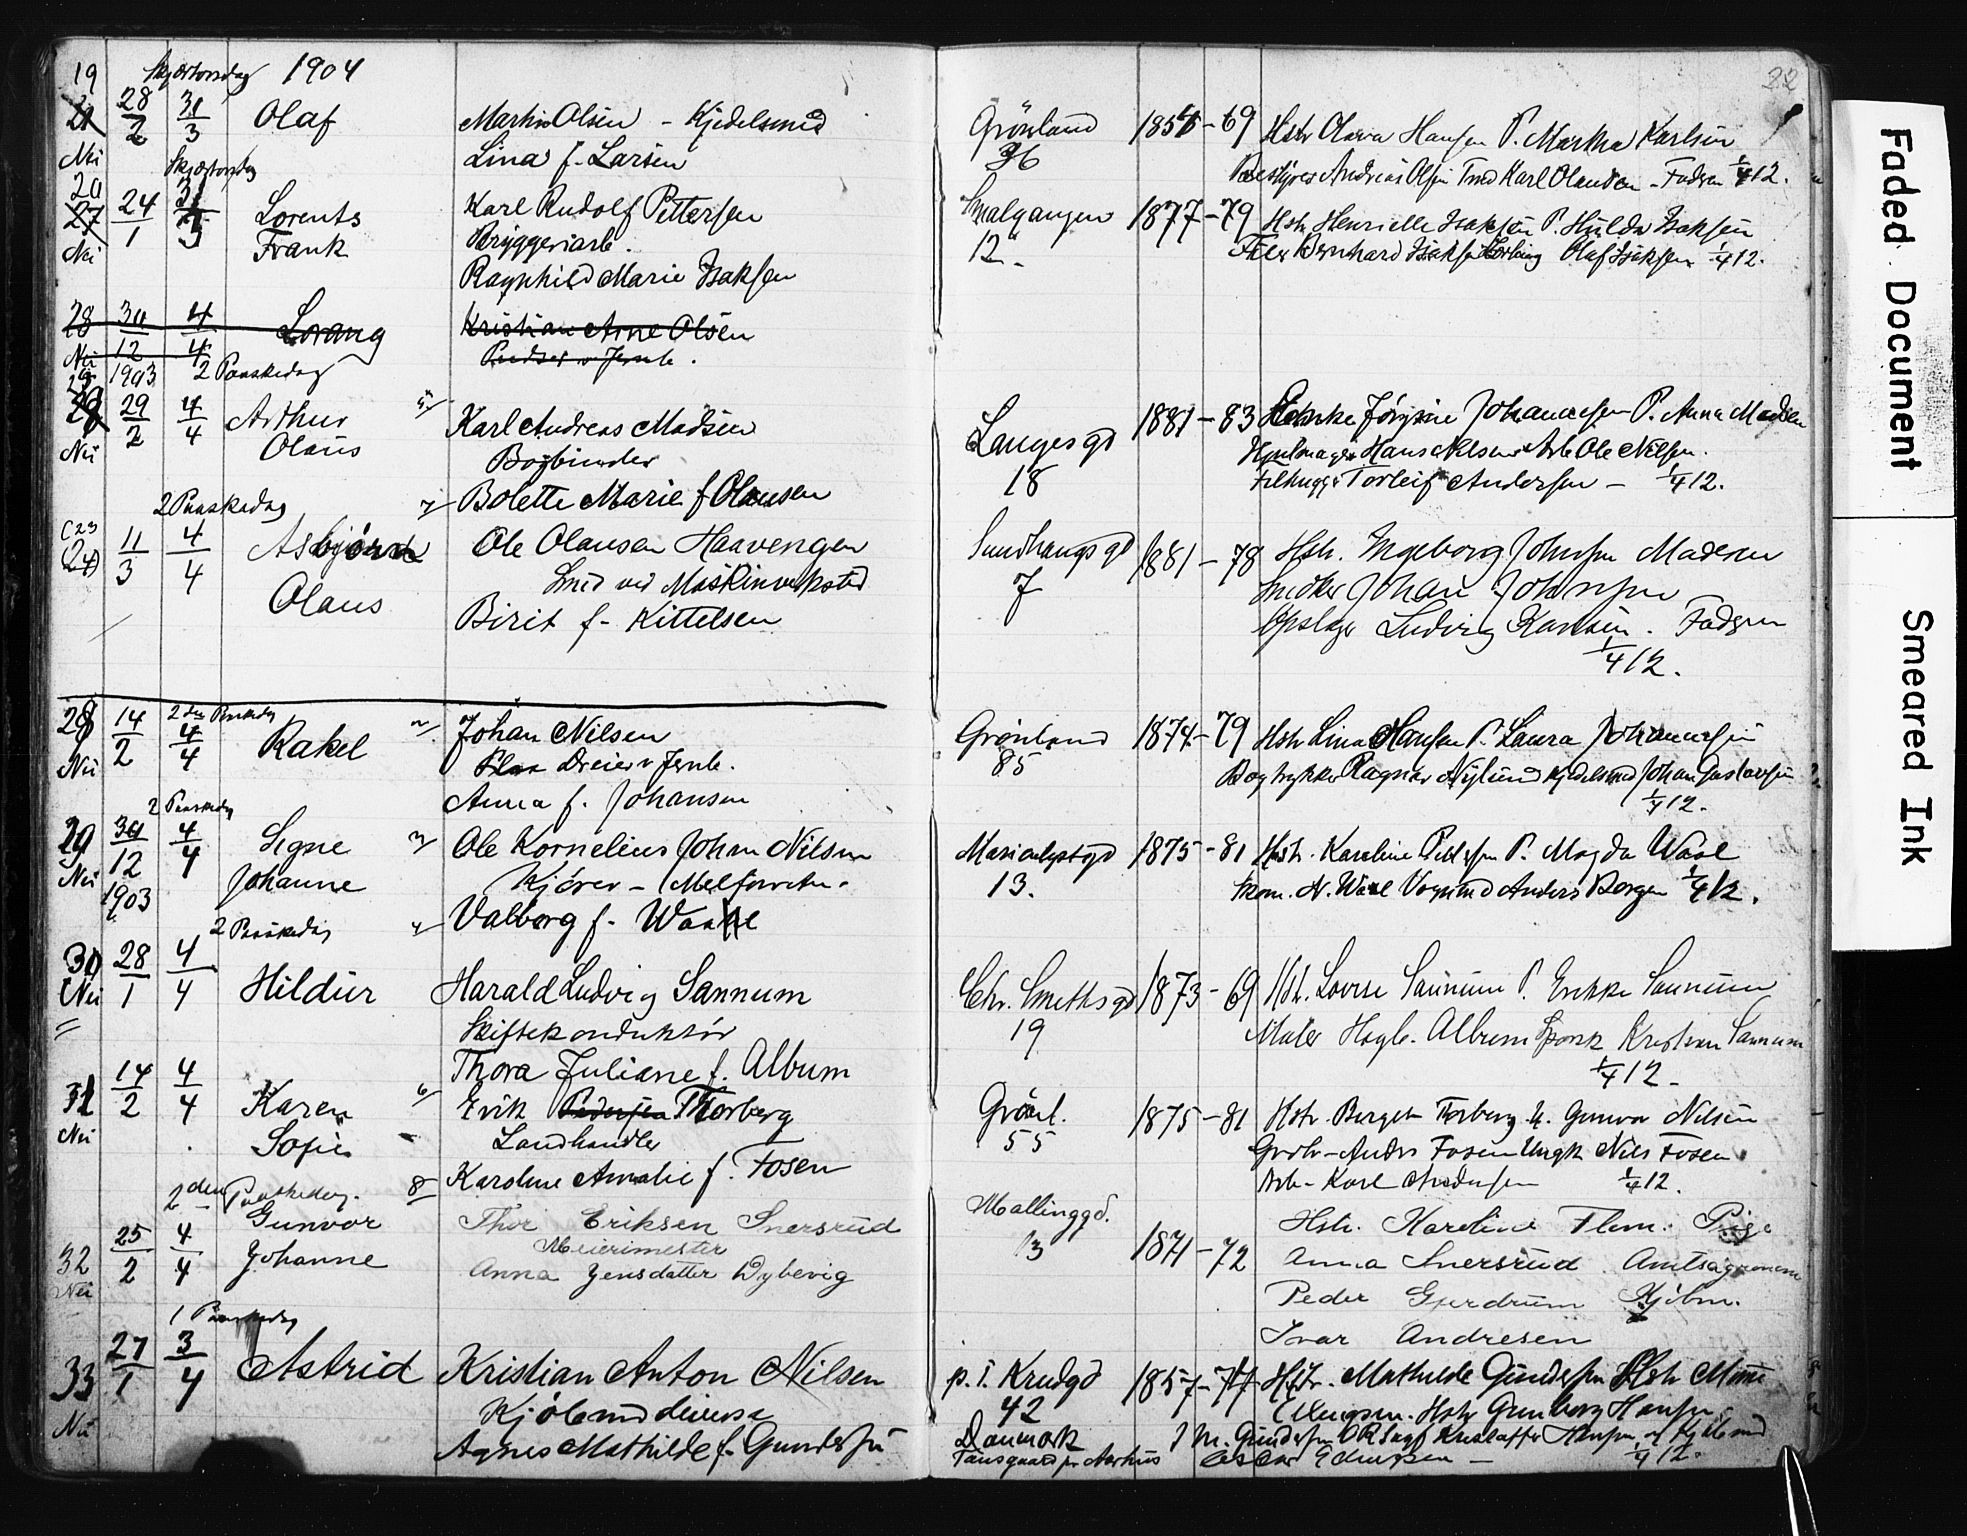 22
19 Skjærtorsdag 1904
21 28/2 31/3 Olaf Martin Olsen - Kjedelsmed Grönland 1856-69 Hstr Olava Hansen P. Martha Karlsen
Nei Lina f. Larsen 36 Bestyrer Andreas Olsen Karl Olausen - Fadren 1/4 12.
Skjærtorsdag
20
27 24/1 31/3 Lorents Karl Rudolf Pettersen Smalgangen 1877-79 Hstr Henrielle Isaksen P. Hulda Isaksen
Nei Frank Bryggeriarb. 12. Bernhard Isaksen Olaf Isaksen 1/4 12.
Ragnhild Marie Isaksen
28 30/12 4/4 Lorang Kristian Arne Olsen
Nei 1903 Pudser v Jernb.
2 Paaskedag
29/2 4/4 Arthur 5/ Karl Andreas Madsen Langes gd 1881-83 Enke Jörgine Johannesen P. Anna Madsen
Nei Olaus Bogbinder 18 Hjulmager Hans Nilsen Arb Ole Nilsen.
2 Paaskedag 7/ Bolette Marie f Olausen Filhugger Torleif Andersen - 1/4 12.
(23
(24) 11/3 4/4 Asbjörn Ole Olausen Haavengen Sundhaugs gd 1881-78 Hstr. Ingeborg Johnsen Madsen
Smed ved Maskinverksted 7 Snedker Johan Johnsen
Olaus Birit f. Kittelsen Opslager Ludvig Karlsen. Fadren
1/4 12.
28 14/2 2den Paaskedag 4/4 Rakel 2/ Johan Nilsen Grönland 1874-79 Hstr Lina Hansen P. Laura Johannesen
Nei Dreier v Jernb. 85 Bogtrykker Ragnar Nylund Kjedelsmed Johan Gustavsen
Anna f. Johansen 1/4 12.
2 Paaskedag
29 30/12 4/4 Signe 3/ Ole Kornelius Johan Nilsen Marialystgd 1875-81 Hstr. Karoline Pettersen P. Magda Waal
Nei 1903 Johanne Kjörer - Melforretn. 13. Skom. N. Waal Vognmd Anders Borgen 1/4 12.
2 Paaskedag 4/ Valborg f. Waale
30 28/1 4/4 Hildur Harald Ludvig Sannum Chr. Smeths gd 1873-69 Hstr. Lovise Sannum P. Enkke Sannum
Nei Skiftekonduktör 19 Maler Hagb. Album Kristian Sannum
Thora Juliane f. Album 1/4 12.
31 14/2 4/4 Karen 6/ Erik Pedersen Thorberg Grönl. 1875-81 Hstr. Berget Thorberg U. Gunvor Nilsen
Nei Sofie Landhandler 55 Grbr - Anders Fosen Ungk Nils Fosen
Karoline Amalie f. Fosen Arb - Karl Andersen 1/4 12.
2den Paaskedag. 8/
32 25/2 4/4 Gunvor Thor Eriksen Snersrud Mallinggd. 1871-72 Hstr. Karoline Flem. Pige
Nei Johanne Meierimester 13 Anna Snersrud Amtsagronom
Anna Jensdatter Dybevig Peder Gjerdrum Kjöbm.
Ivar Andresen
1 Paaskedag
33 27/1 3/4 Astrid Kristian Anton Nilsen p. t. Krudgd 1857-77 Hstr. Mathilde Gundersen Hstr Mimi
Nei Kjöbmd 42 Hstr Gunborg Hansen
Agnes Mathilde f. Gundersen Danmark M. Gundersen Kristoffer Hansen og Kjöbmd
Aarhus 1/4 12.
Faded Document
Smeared Ink